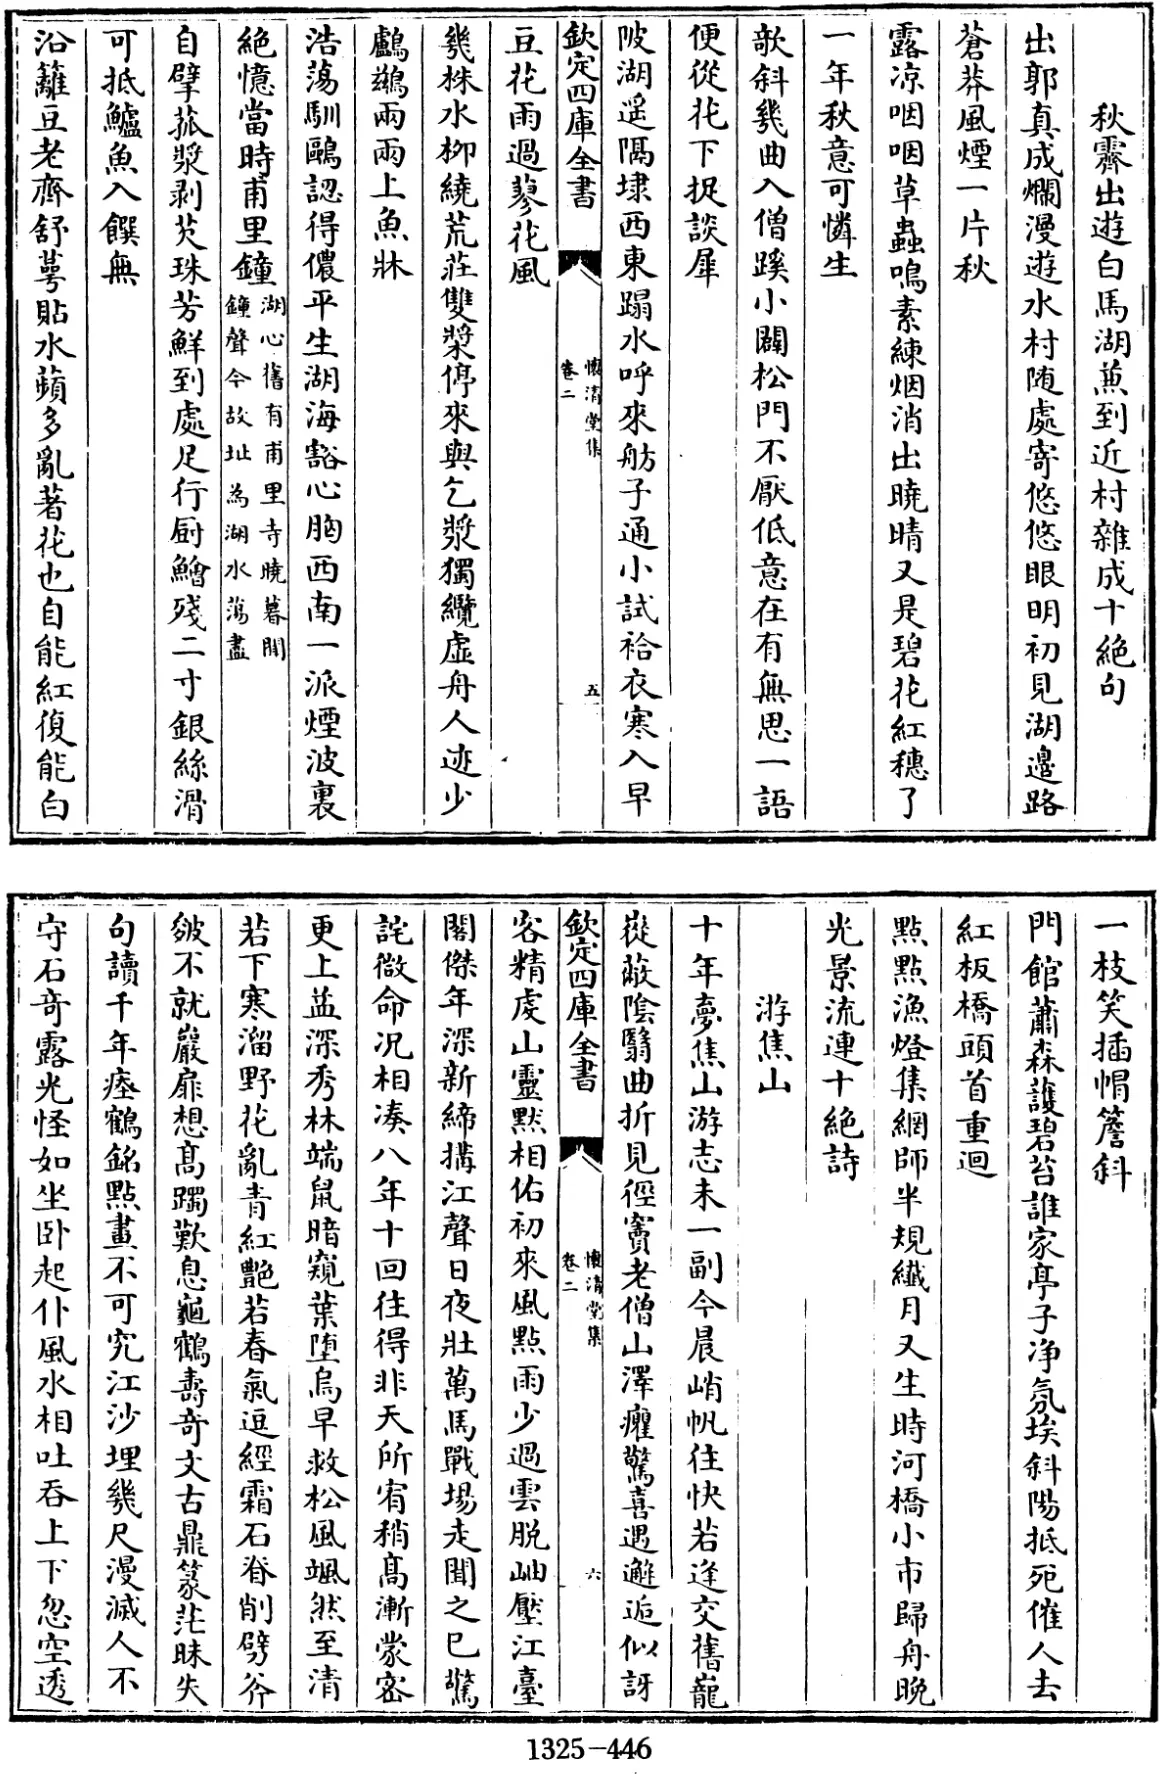 秋霽出遊白馬湖兼到近村雜成十絶句
出郭真成爛漫遊水村随處寄悠悠眼明初見湖邊路
蒼莽風煙一片秋
露凉咽咽草蟲鳴素練烟消出曉晴又是碧花紅穗了
一年秋意可憐生
欹斜幾曲入僧蹊小闢松門不厭低意在有無思一語
便從花下捉談犀
陂湖遥隔埭西東蹋水呼來舫子通小試袷衣寒入早
欽定四庫全書
懷清堂集
卷二
五
豆花雨過蓼花風
幾株水栁繞荒莊雙槳停來與乞漿獨纜虚舟人迹少
鸕鷀兩兩上魚牀
浩蕩馴鷗認得儂平生湖海豁心胸西南一派煙波裏
絶憶當時甫里鐘
湖心舊有甫里寺曉暮聞
鐘聲今故址為湖水蕩盡
自擘菰漿剥芡珠芳鮮到處足行厨鱠殘二寸銀絲滑
可抵鱸魚入饌無
沿籬豆老齊舒萼貼水蘋多亂著花也自能紅復能白
一枝笑插帽簷斜
門館蕭森護碧苔誰家亭子净氛埃斜陽抵死催人去
紅板橋頭首重迴
點點漁燈集網師半規纖月又生時河橋小市歸舟晚
光景流連十絶詩
游焦山
十年夢焦山游志未一副今晨峭帆往快若逢交舊巃
嵸蔽陰翳曲折見徑竇老僧山澤癯驚喜遇邂逅似訝
欽定四庫全書
懷清堂集
卷二
六
客精虔山靈默相佑初來風點雨少過雲脱岫壓江臺
閣傑年深新締搆江聲日夜壯萬馬戰場走聞之已驚
詫微命况相凑八年十回往得非天所宥稍髙漸蒙密
更上益深秀林端鼠暗窺葉墮烏早救松風颯然至清
若下寒溜野花亂青紅艶若春氣逗經霜石脊削劈斧
皴不就巖扉想髙躅歎息龜鶴壽奇文古鼎篆茫昧失
句讀千年瘞鶴銘點畫不可究江沙埋幾尺漫滅人不
守石奇露光怪如坐卧起仆風水相吐吞上下忽空透
1325-446